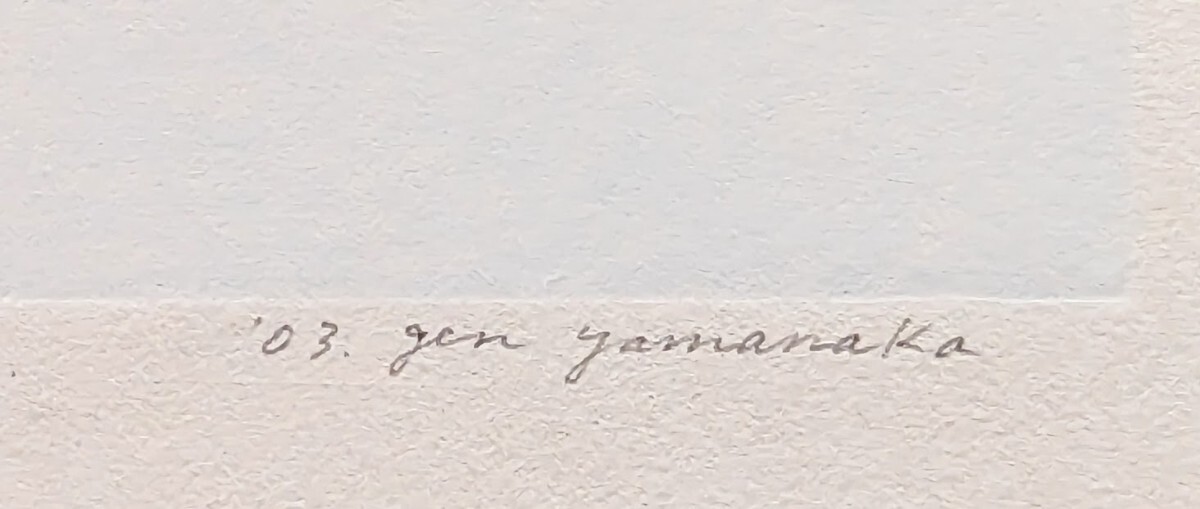 '03. gen yamanaka